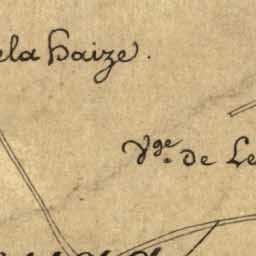 ela haize.
Vge. de Le